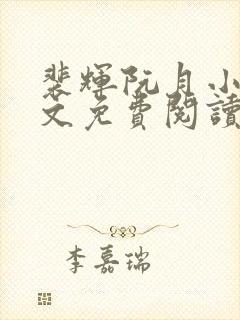 裴輝阮月小
文免費閱讀
李嘉瑞